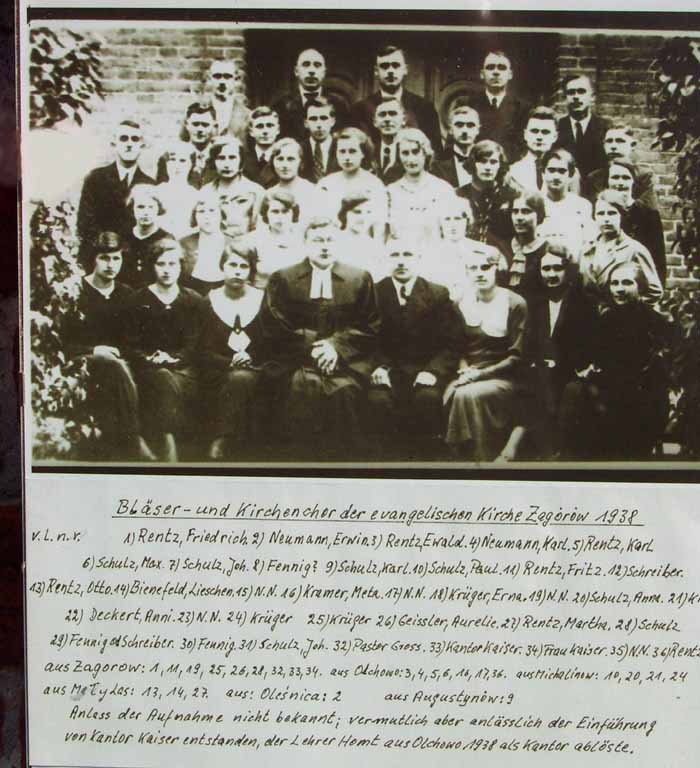 Bläser- und Kirchenchor der evangelischen Kirche Zagórów 1938
v.l.n.r. 1) Rentz, Friedrich. 2) Neumann, Erwin. 3) Rentz, Ewald. 4) Neumann, Karl. 5) Rentz, Karl
6) Schulz, Max. 7) Schulz, Joh. 8) Fennig? 9) Schulz, Karl. 10) Schulz, Paul. 11) Rentz, Fritz. 12) Schreiber.
13) Rentz, Otto. 14) Bienefeld, Lieschen. 15) N.N. 16) Kramer, Meta. 17) N.N. 18) Krüger, Erna. 19) N.N. 20) Schulz, Anna. 21)
22) Deckert, Anni. 23) N.N. 24) Krüger 25) Krüger 26) Geissler, Aurelie. 27) Rentz, Martha. 28) Schulz
29) Fennig od Schreiber. 30) Fennig. 31) Schulz, Joh. 32) Pastor Gross. 33) Kantor Kaiser. 34) Frau Kaiser. 35) N.N. 36) Rentz
aus Zagorow: 1, 11, 19, 25, 26, 28, 32, 33, 34. aus Olchowo: 3, 4, 5, 6, 16, 17, 36. aus Michalinow: 10, 20, 21, 24
aus Mały Las: 13, 14, 27. aus: Oleśnica: 2 aus Augustynów: 9
Anlass der Aufnahme nicht bekannt; vermutlich aber anlässlich der Einführung
von Kantor Kaiser entstanden, der Lehrer Hemt aus Olchowo 1938 als Kantor ablöste.